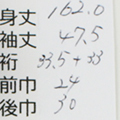 身丈 162.0
袖丈 47.5
裄 33.5 + 33
前巾 24
後巾 30